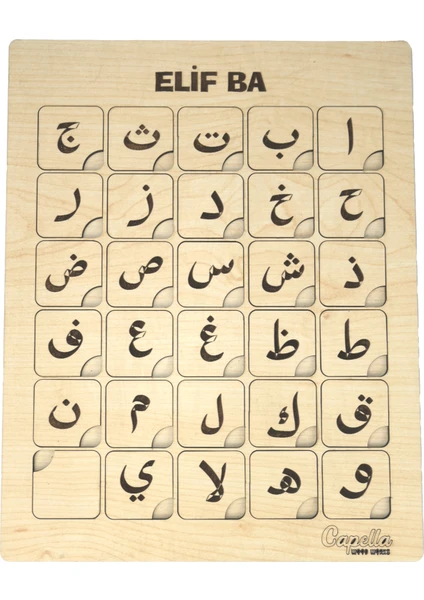 ELİF BA
ا ب ت ث ج
ح خ د ز ر
ذ ش س ص ض
ط ظ غ ع ف
ق ك ل م ن
و ه لا ي
Capella
WOOD WORKS